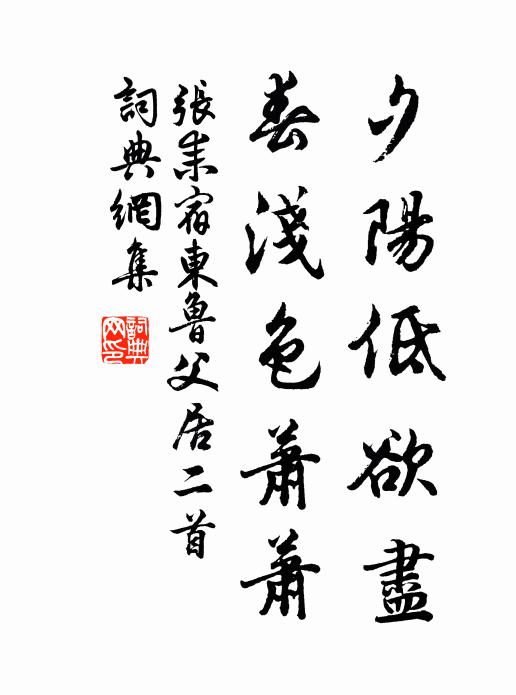 夕陽低欲盡
春淺色蕭蕭
張耒宿東魯父居二首
詞典網集
詞典
网印